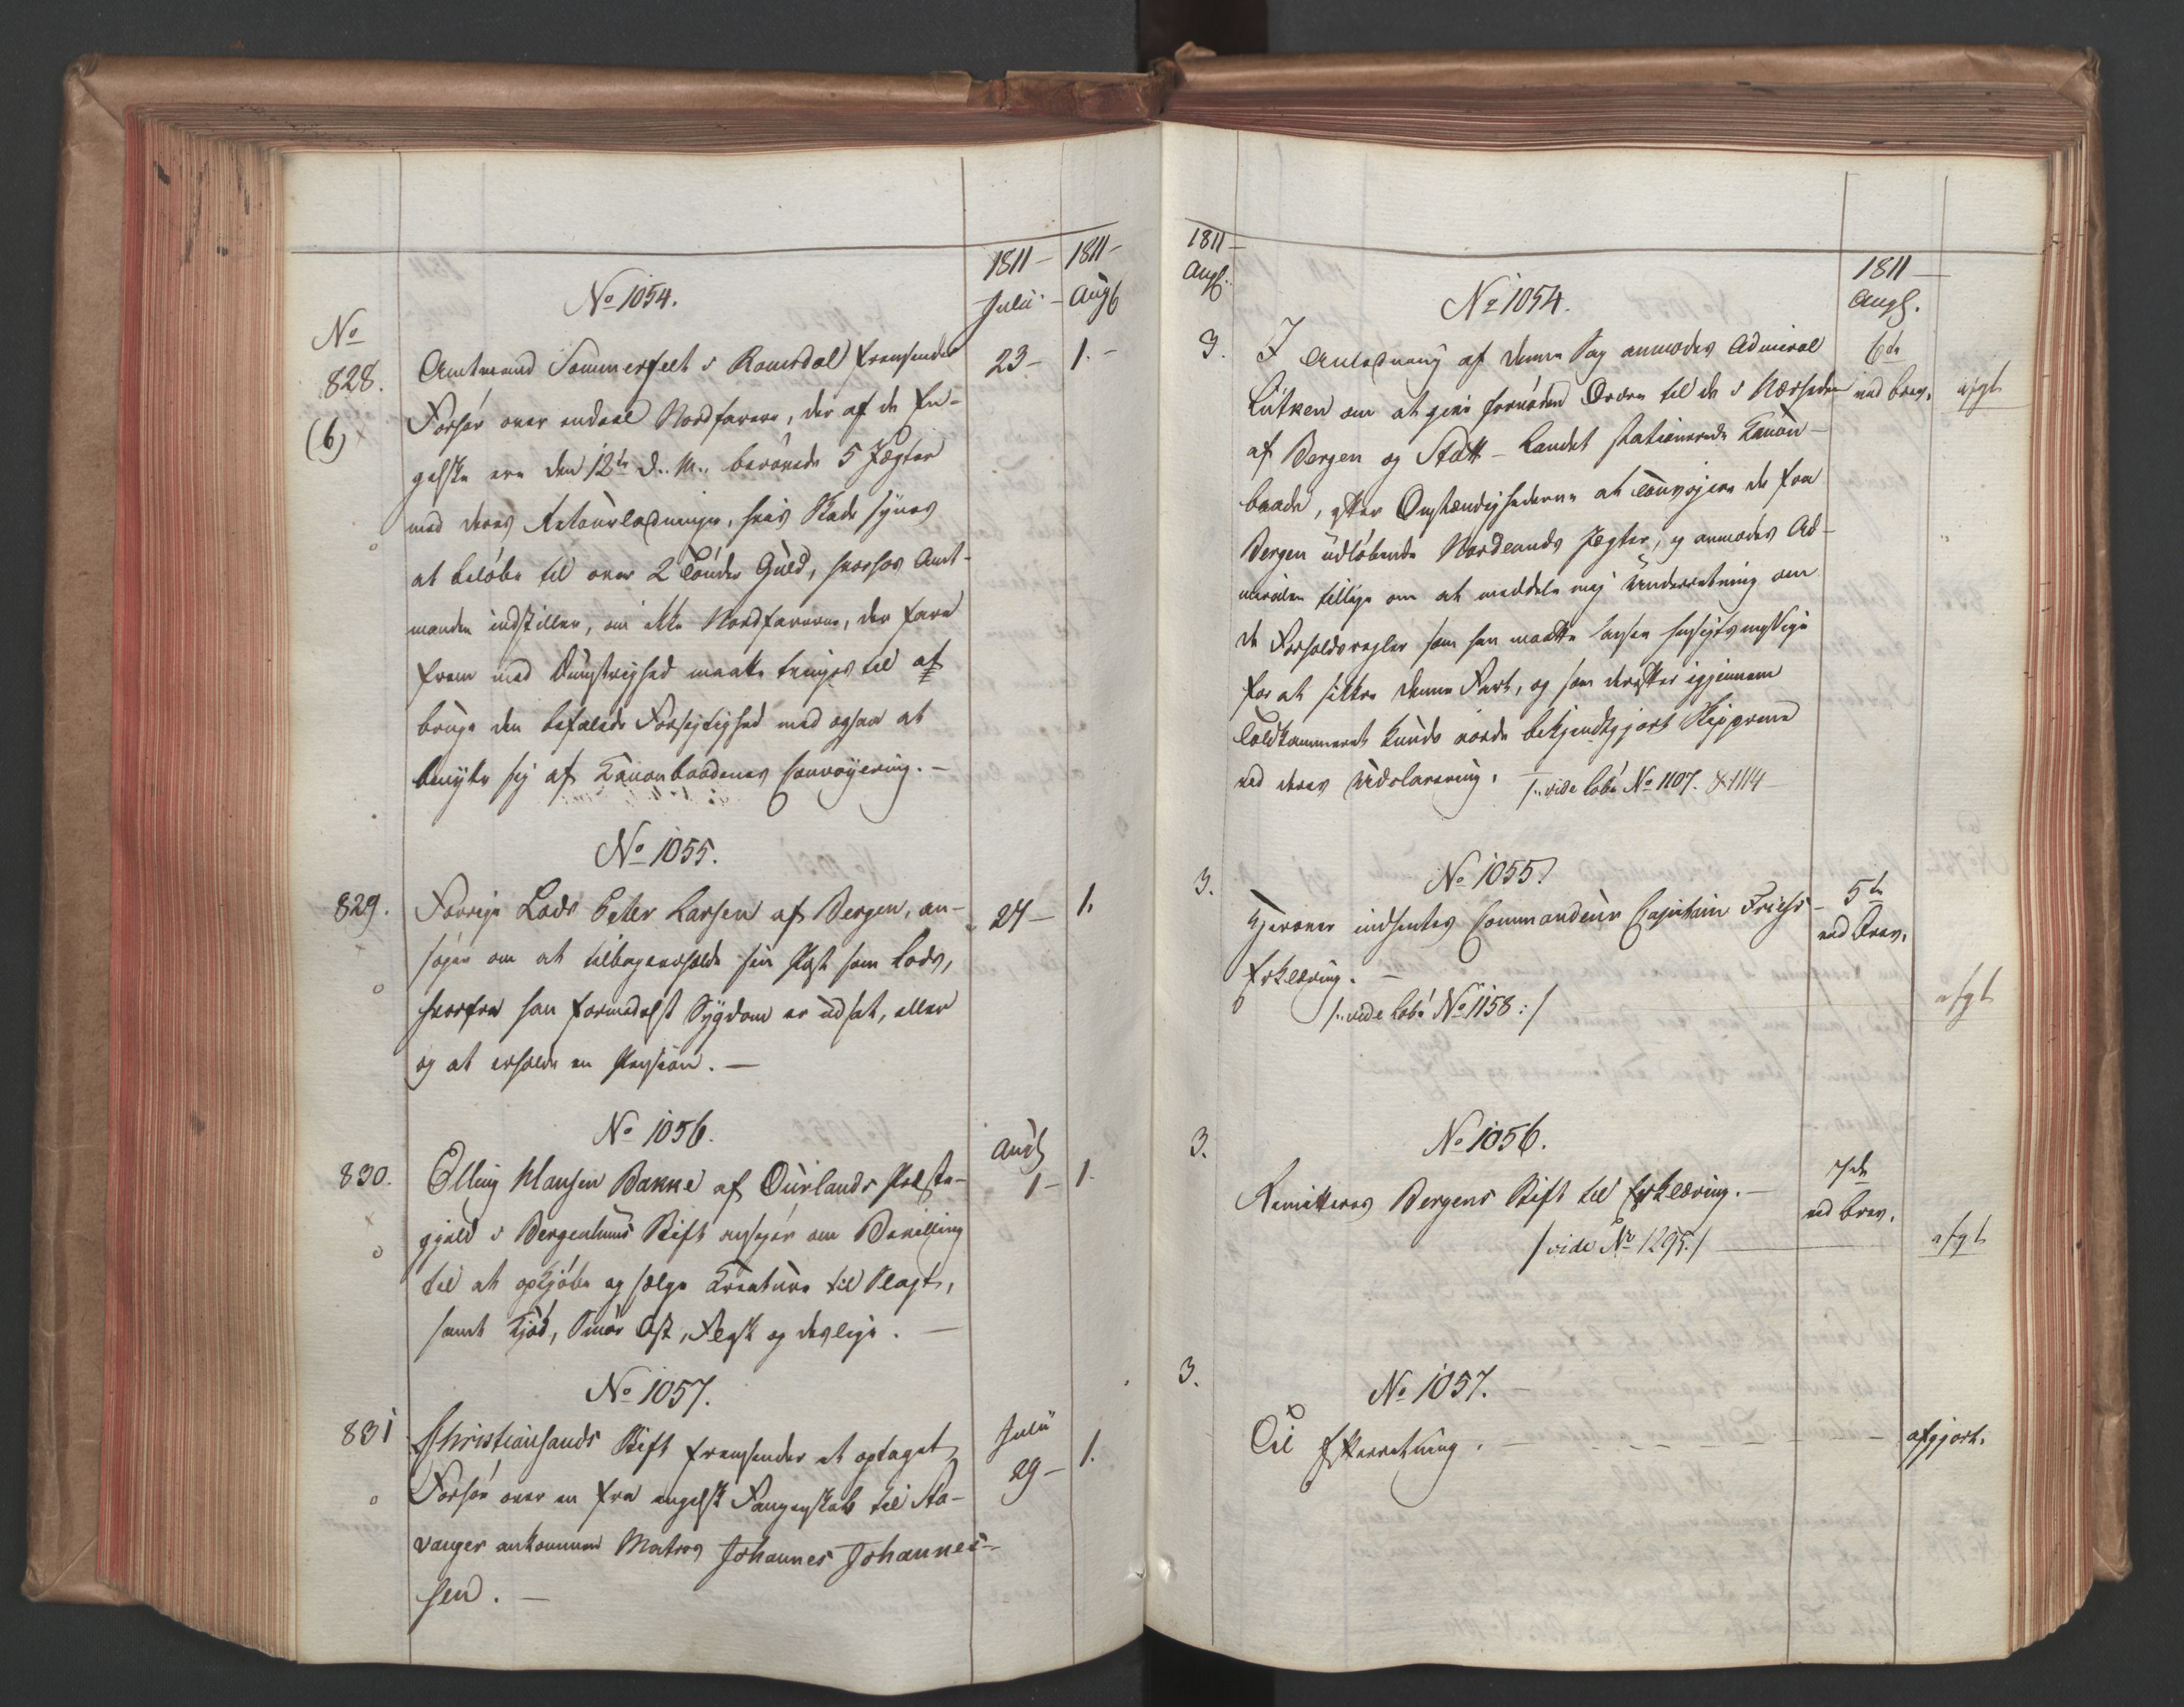 1811 – 1811 –
Julii – Augs
No 1054.
No
828. Amtmand Sommerfelt i Romsdal fremsender 23 – 1. –
(b) Forhør over endeel Nordfarere, der af de En-
gelske ere den 12te d. M. berøvede 5 Jægter
med deres Retourladninger, hvis Skade synes
at beløbe til over 2 Tønder Guld, hvorhos Amt-
manden indstiller, om ikke Nordfarerne, der fare
frem med Dumdristighed maatte tvinges til at
bruge den befalede Forsigtighed med ogsaa at
benytte sig af Canonbaadenes Convoyering. –
No 1055.
829. Forrige Lods Peter Larsen af Bergen, an- 24 – 1.
søger om at tilbageerholde sin Post som Lods,
hvorfra han formedelst Sygdom er udsat, eller
og at erholde en Pension. –
No 1056.
Augs
830. Elling Hansen Bakke af Ourlands Præste- 1 – 1.
gjeld i Bergenhuus Stift ansøger om Bevilling
til at opkjøbe og sælge Creature til Slagt,
samt Kjød, Smør Ost, Flesk og deslige. –
No 1057.
831 Christiansands Stift fremsender et optaget Julii
Forhør over en fra engelsk Fangenskab til Sta- 29 – 1.
vanger ankommen Matros Johannes Johannes-
sen. –
1811 –
Augs.
1811 –
Augs.
No 1054.
3. I Anledning af denne Sag anmodes Admiral 6te
Lütken om at give fornøden Ordre til de i Nærheden ved Brev. afgt
af Bergen og Statt-Landet stationerede Canon-
baade, efter Omstændighederne at convoyere de fra
Bergen udløbende Nordlands Jægter, og anmodes Ad-
miralen tillige om at meddele mig Underretning om
de Forholdsregler som han maatte ansee hensigtsmæssige
for at sikkre denne Fart, og som derefter igjennem
Toldkammeret kunde vorde bekjendtgjort Skipperne
ved deres Udclarering. /: vide Løbe No 1107. & 1114
No 1055.
3. Herover indhentes Commandeur Capitain Friess – 5te
Erklæring. – ved Brev.
/: vide Løbe No 1158 :/ afgt
No 1056.
3. 7de
Remitteres Bergens Stift til Erklæring. – ved Brev.
/ vide No 1295. / afgt
No 1057. –
3.
Til Efterretning. – afgjort.